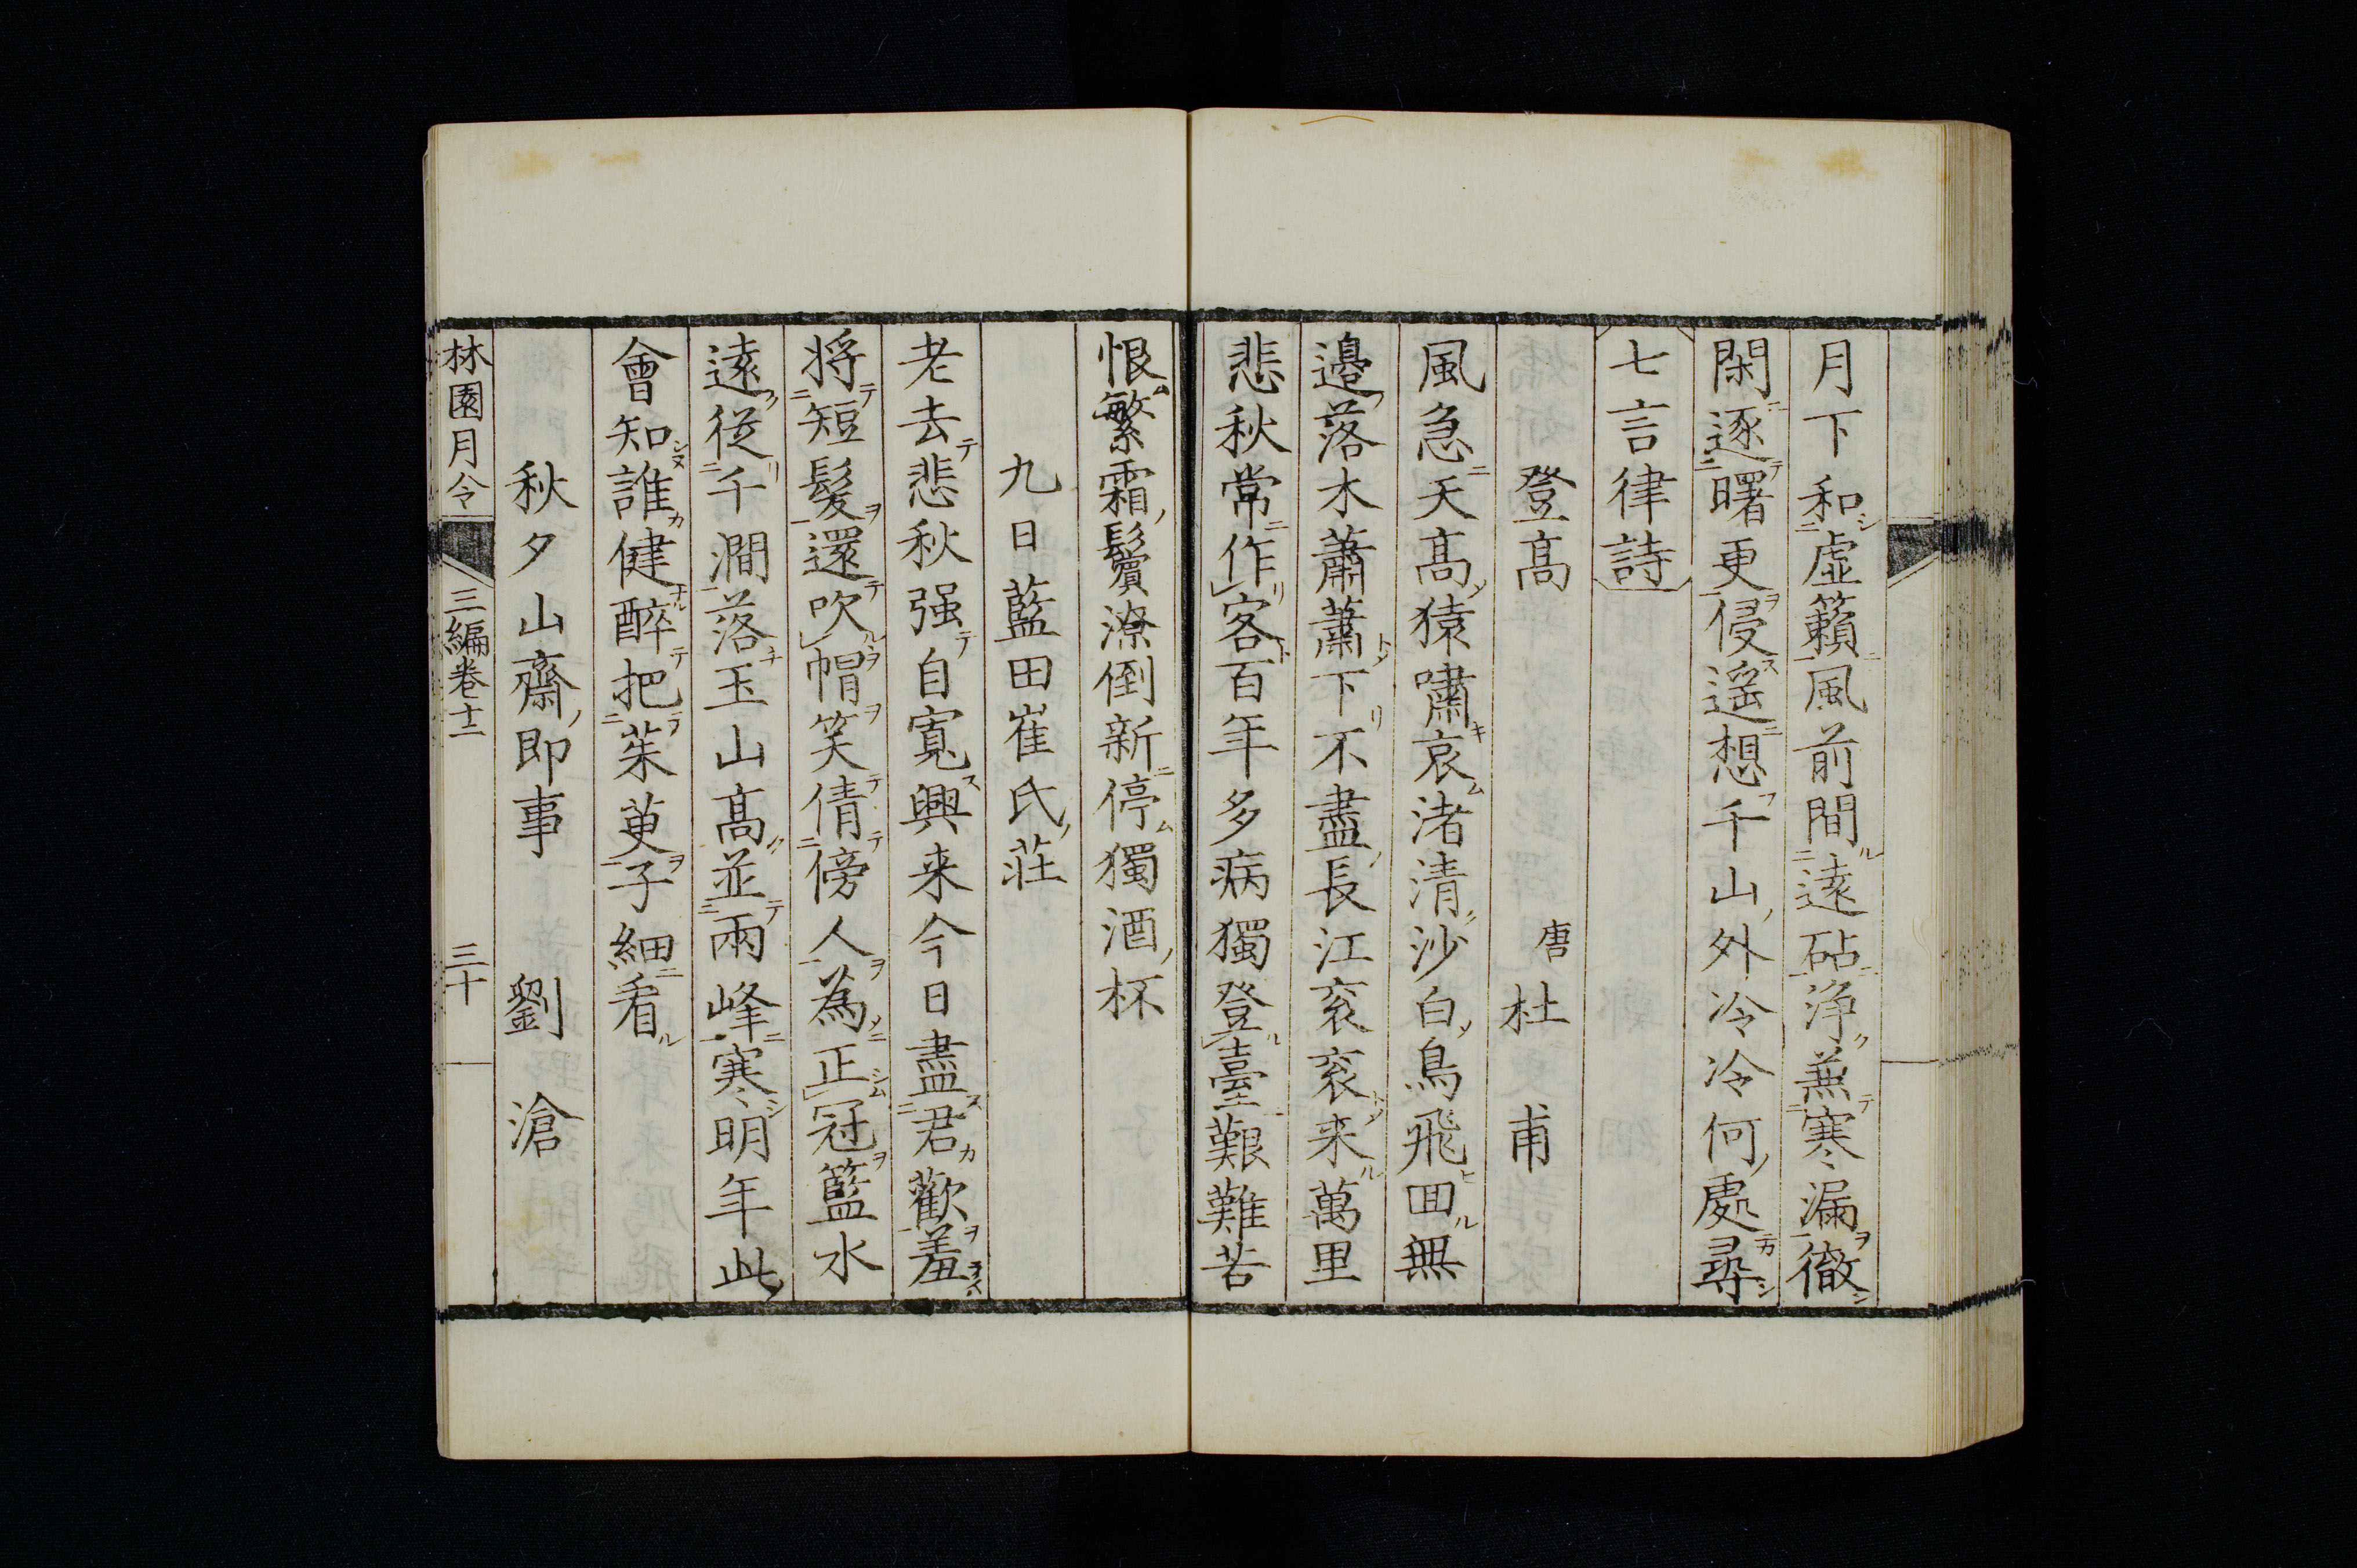 月下和虚籟風前間遠砧浄兼寒漏徹
閑逐曙更侵遥想千山外冷冷何處尋
七言律詩
登高　唐　杜甫
風急天高猿嘯哀渚清沙白鳥飛回無
邊落木蕭蕭下不盡長江衮衮来萬里
悲秋常作客百年多病獨登臺艱難苦
恨繁霜鬢潦倒新停獨酒杯
九日藍田崔氏莊
老去悲秋强自寬興来今日盡君歡羞
将短髪還吹帽笑倩傍人為正冠籃水
遠從千澗落玉山高並兩峰寒明年此
會知誰健醉把茱萸子細看
秋夕山齋即事　劉滄
林園月令　三編巻十二　三十